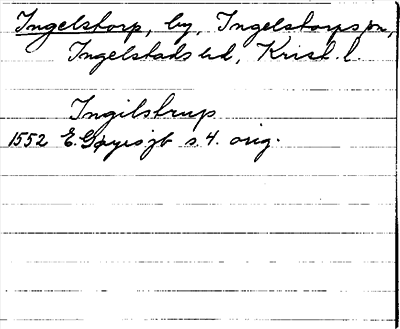 Ingelstorp, by, Ingelstorps sn,
Ingelstads hd, Krist. l.
Ingilstrup
1552 E. Gøyes jb s. 4. orig.